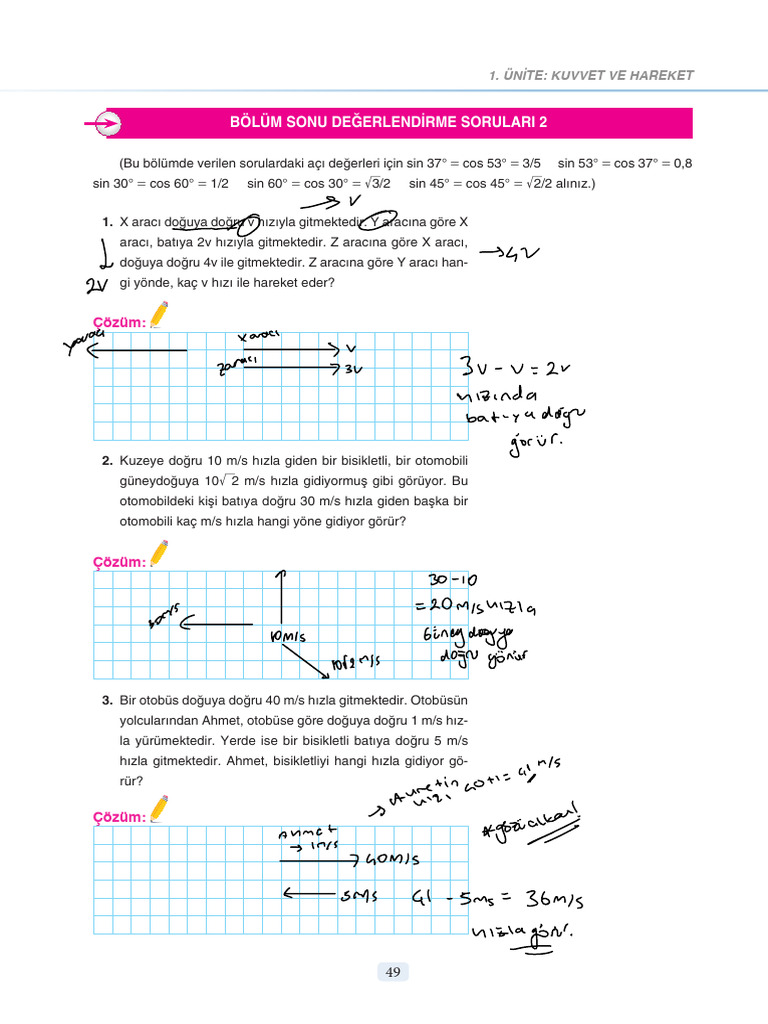 1. ÜNİTE: KUVVET VE HAREKET
BÖLÜM SONU DEĞERLENDİRME SORULARI 2
(Bu bölümde verilen sorulardaki açı değerleri için sin 37° = cos 53° = 3/5 sin 53° = cos 37° = 0,8
sin 30° = cos 60° = 1/2 sin 60° = cos 30° = √3/2 sin 45° = cos 45° = √2/2 alınız.)
→ v
1. X aracı doğuya doğru v hızıyla gitmektedir. Y aracına göre X
aracı, batıya 2v hızıyla gitmektedir. Z aracına göre X aracı,
doğuya doğru 4v ile gitmektedir. Z aracına göre Y aracı han-
gi yönde, kaç v hızı ile hareket eder?
→ 4v
2v
Çözüm:
y aracı
x aracı
v
z aracı
3v
3v - v = 2v
hızında
batıya doğu
görür.
2. Kuzeye doğru 10 m/s hızla giden bir bisikletli, bir otomobili
güneydoğuya 10√2 m/s hızla gidiyormuş gibi görüyor. Bu
otomobildeki kişi batıya doğru 30 m/s hızla giden başka bir
otomobili kaç m/s hızla hangi yöne gidiyor görür?
Çözüm:
30m/s
10m/s
10√2 m/s
30-10
= 20 m/s hızla
Güney doğuya
doğru görür
3. Bir otobüs doğuya doğru 40 m/s hızla gitmektedir. Otobüsün
yolcularından Ahmet, otobüse göre doğuya doğru 1 m/s hız-
la yürümektedir. Yerde ise bir bisikletli batıya doğru 5 m/s
hızla gitmektedir. Ahmet, bisikletliyi hangi hızla gidiyor gö-
rür?
→ Ahmetin hızı 40+1 = 41 m/s
Çözüm:
Ahmet
→ 1m/s
40m/s
5m/s
41 - 5ms = 36m/s
hızla görür.
49